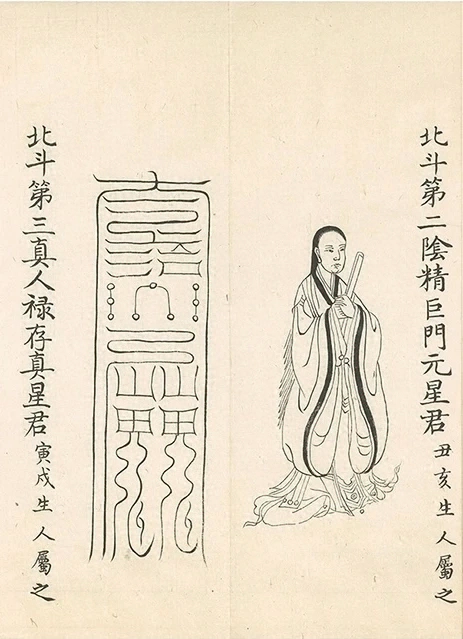 北斗第二陰精巨門元星君 丑亥生人屬之
北斗第三真人禄存真星君 寅戌生人屬之